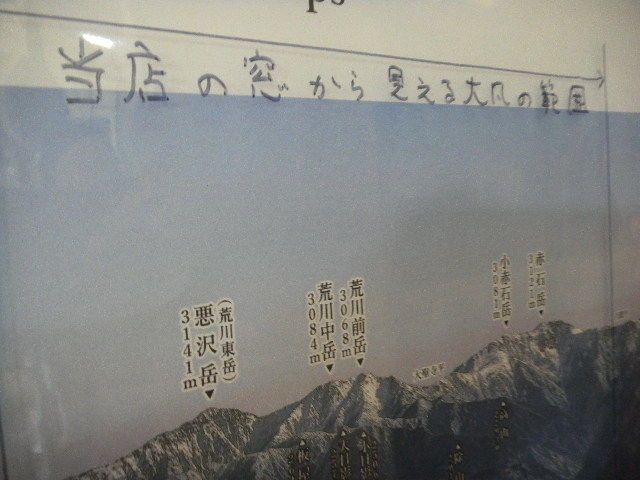 ps
当店の窓から見える大凡の範囲
赤石岳
3121m
小赤石岳
3081m
荒川前岳
3068m
荒川中岳
3084m
(荒川東岳)
悪沢岳
3141m
大聖寺平